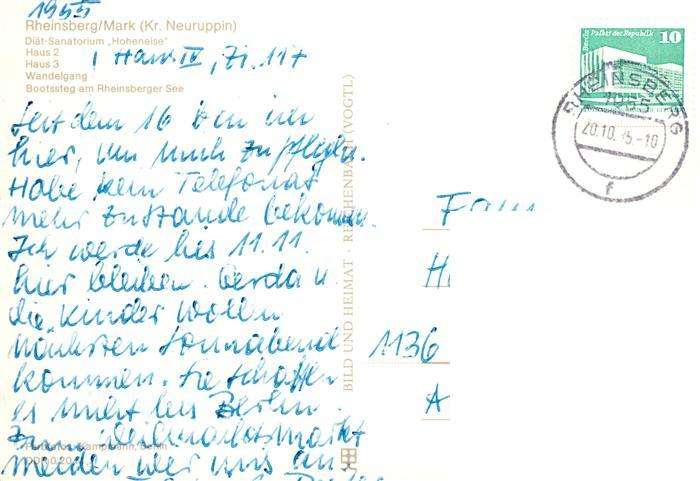 1955
Rheinsberg/Mark (Kr. Neuruppin)
Diät-Sanatorium „Hohenelse"
Haus 2
Haus 3
Wandelgang
Bootssteg am Rheinsberger See
Haus IV, Zi. 117
Seit dem 16 bin ich
hier, um mich zu pflegen.
Habe kein Telefonat
mehr zustande bekommen.
Ich werde bis 11.11.
hier bleiben. Gerda u.
die Kinder wollen
nächsten Sonnabend
kommen. Sie schaffen
es nicht bis Berlin.
Zum Weihnachtsmarkt
melden wir uns an
BILD UND HEIMAT · REICHENBACH (VOGTL)
Palast der Republik
10
RHEINSBERG
1955
20.10. -10
f
Frau
H
1136
A
Kampmann, Berlin